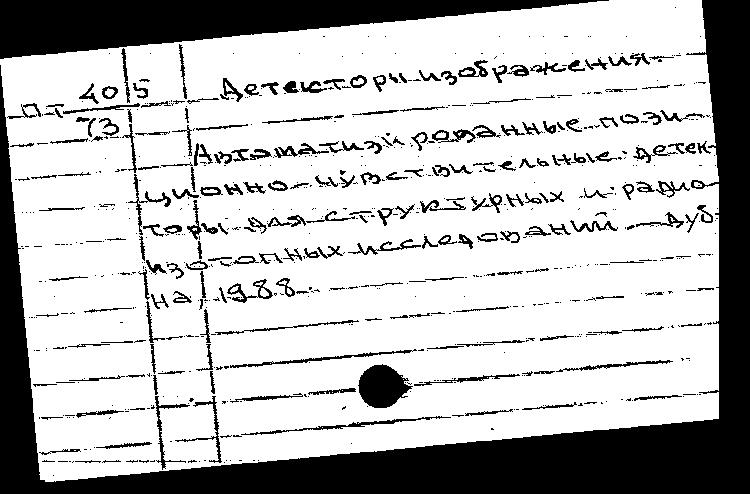 Пт 405 Детекторы изображения.
73
Автоматизированные пози-
ционно-чувствительные детек-
торы для структурных и радио-
изотопных исследований. — Дуб-
на, 1988.